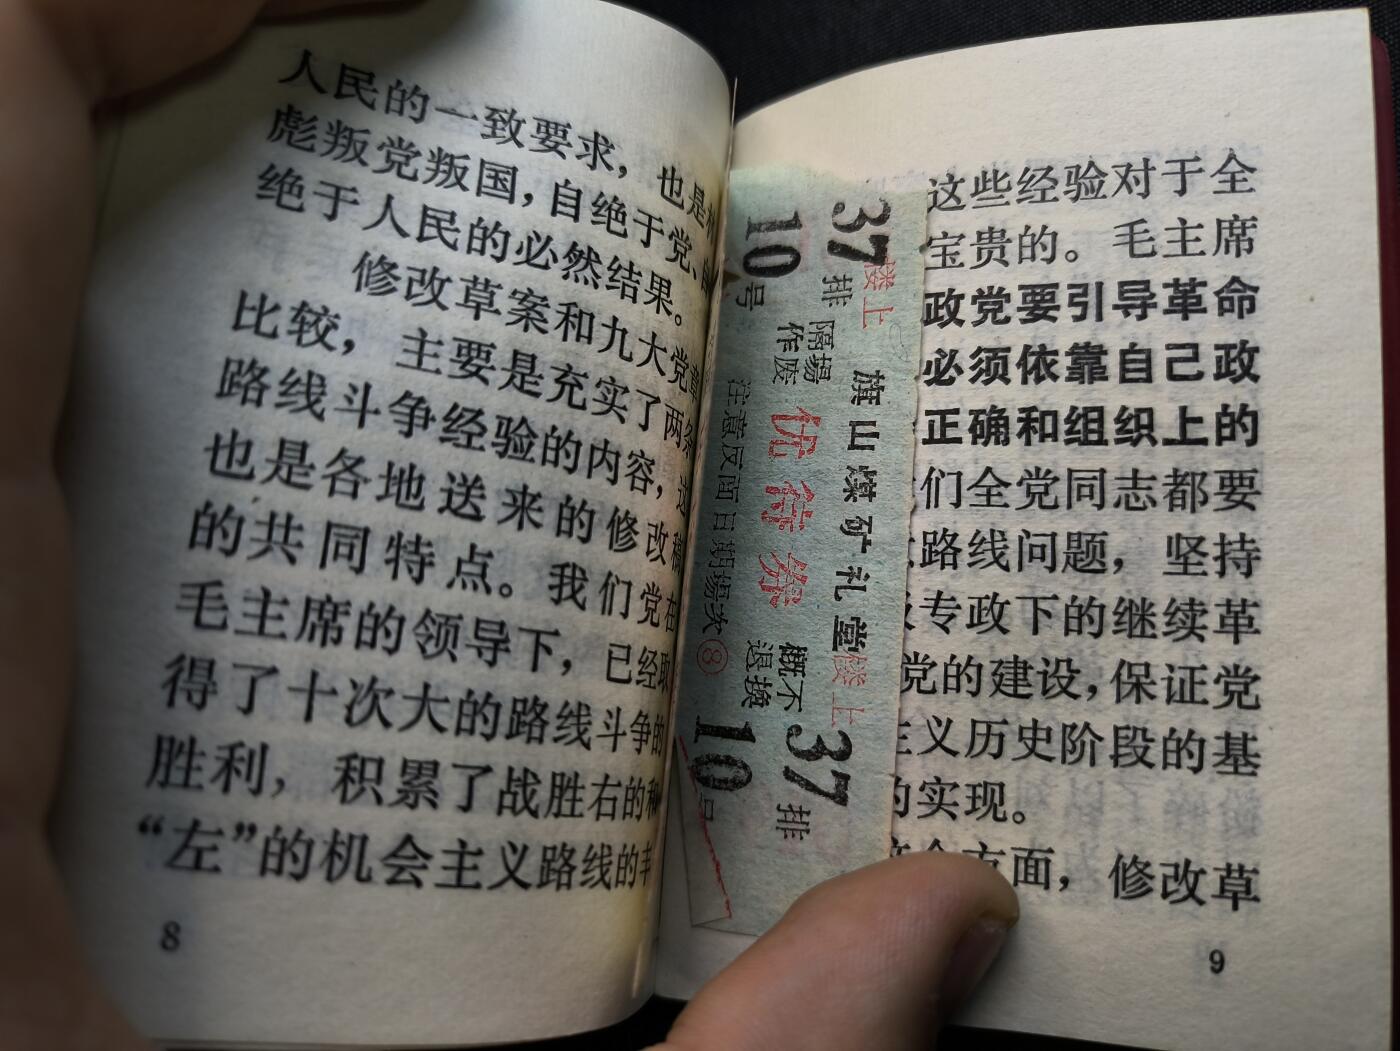 人民的一致要求，也是林
彪叛党叛国，自绝于党、自
绝于人民的必然结果。
修改草案和九大党章
比较，主要是充实了两条
路线斗争经验的内容，这
也是各地送来的修改稿
的共同特点。我们党在
毛主席的领导下，已经取
得了十次大的路线斗争的
胜利，积累了战胜右的和
“左”的机会主义路线的丰
8
37排
10号
楼上
隔场
作废
旗山煤矿礼堂
优待券
注意反面日期场次⑧
概不
退换
楼上
37排
10号
这些经验对于全
宝贵的。毛主席
政党要引导革命
必须依靠自己政
正确和组织上的
们全党同志都要
路线问题，坚持
专政下的继续革
党的建设，保证党
主义历史阶段的基
的实现。
方面，修改草
9